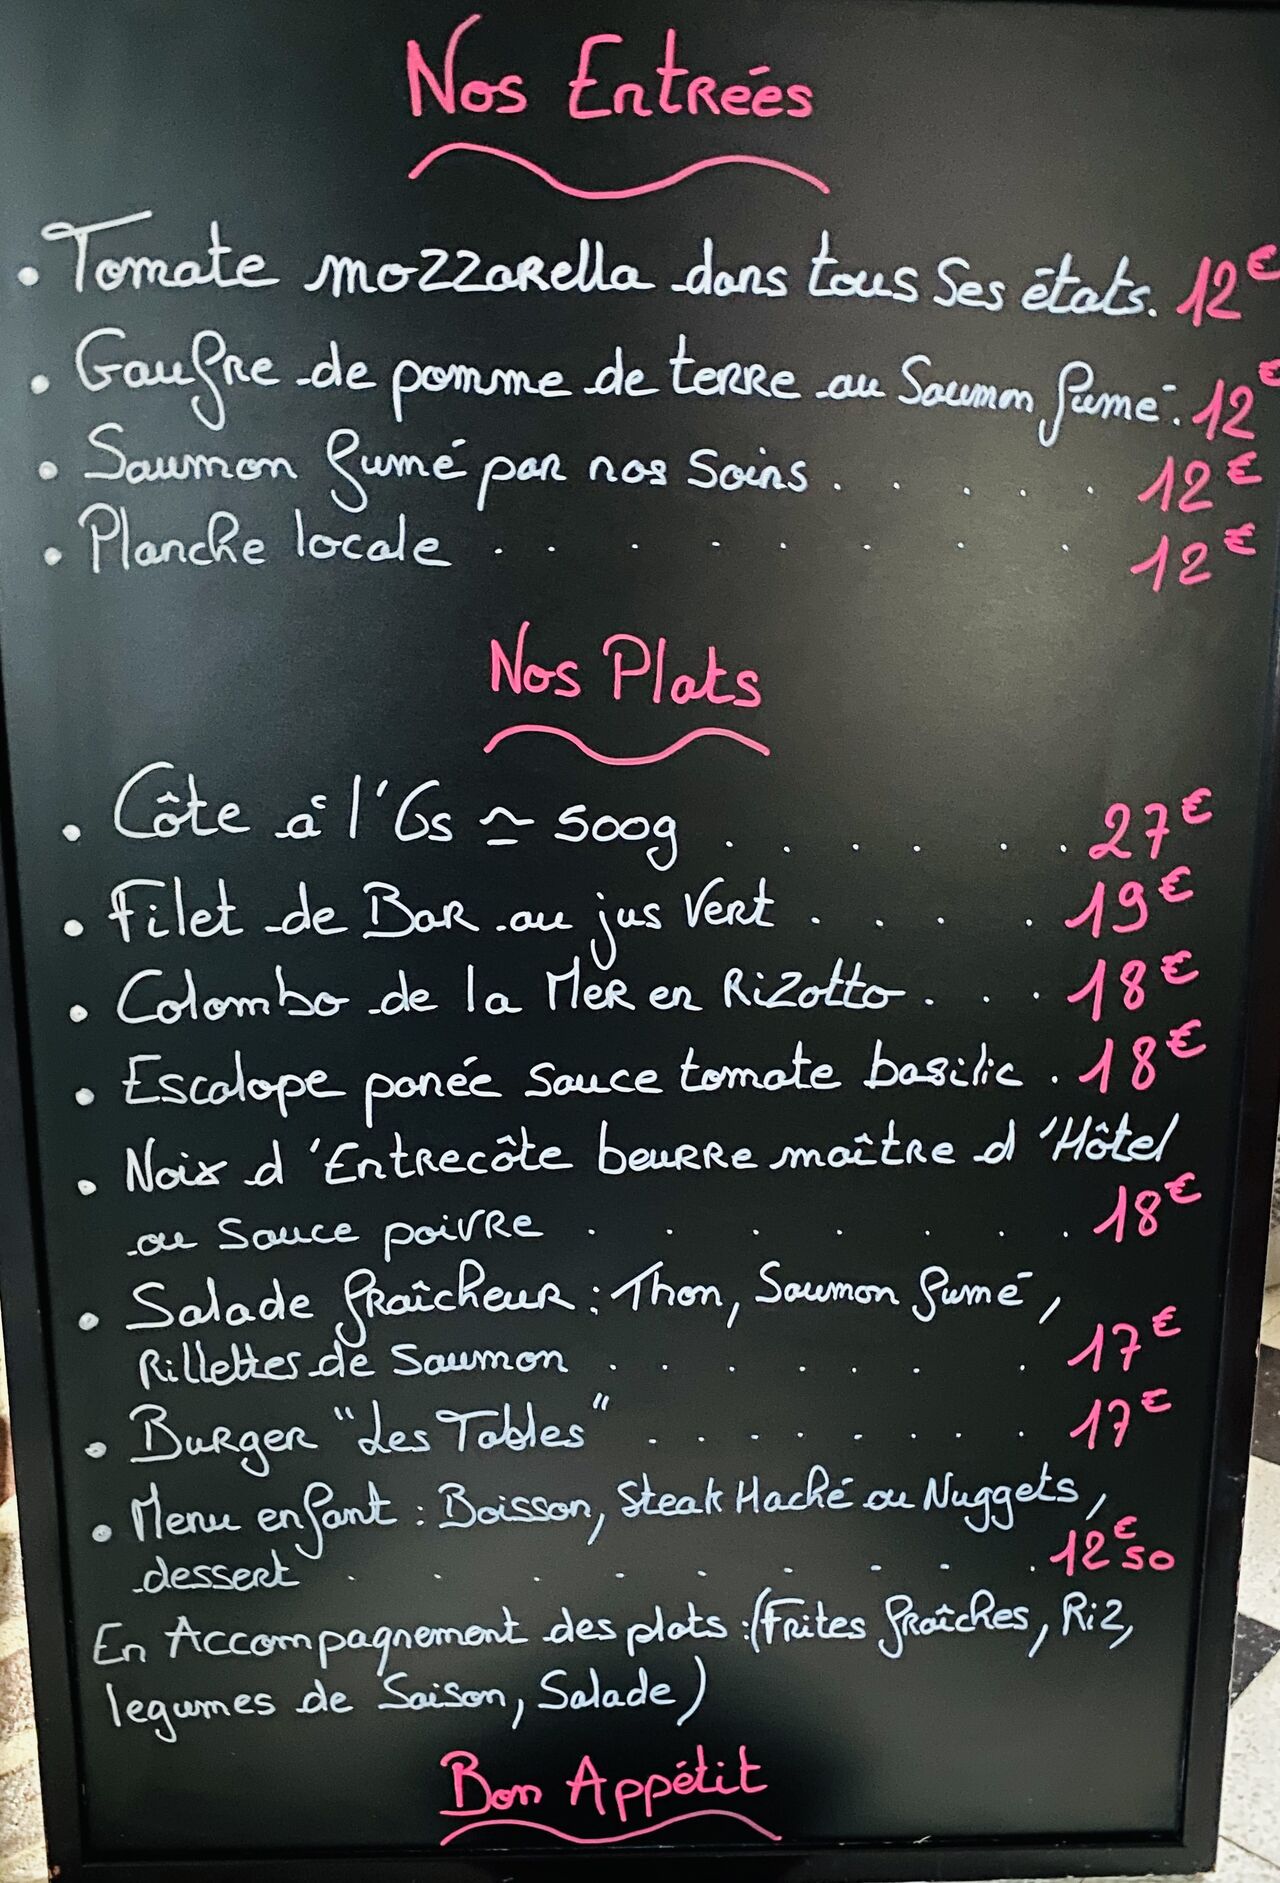 Nos Entrées
• Tomate mozzarella dans tous ses états. 12€
• Gaufre de pomme de terre au Saumon fumé. 12€
• Saumon fumé par nos soins . . . . . 12€
• Planche locale . . . . . . . . 12€
Nos Plats
• Côte à l'Os ≃ 500g . . . . . . 27€
• Filet de Bar au jus vert . . . . 19€
• Colombo de la Mer en Rizotto . . . 18€
• Escalope panée sauce tomate basilic . 18€
• Noix d'Entrecôte beurre maître d'Hôtel
ou sauce poivre . . . . . . . 18€
• Salade fraîcheur : Thon, Saumon fumé,
Rillettes de Saumon . . . . . . 17€
• Burger "Les Tables" . . . . . . . 17€
• Menu enfant : Boisson, Steak Haché ou Nuggets,
dessert . . . . . . . . . 12€50
En Accompagnement des plats : (Frites fraîches, Riz,
legumes de Saison, Salade)
Bon Appétit